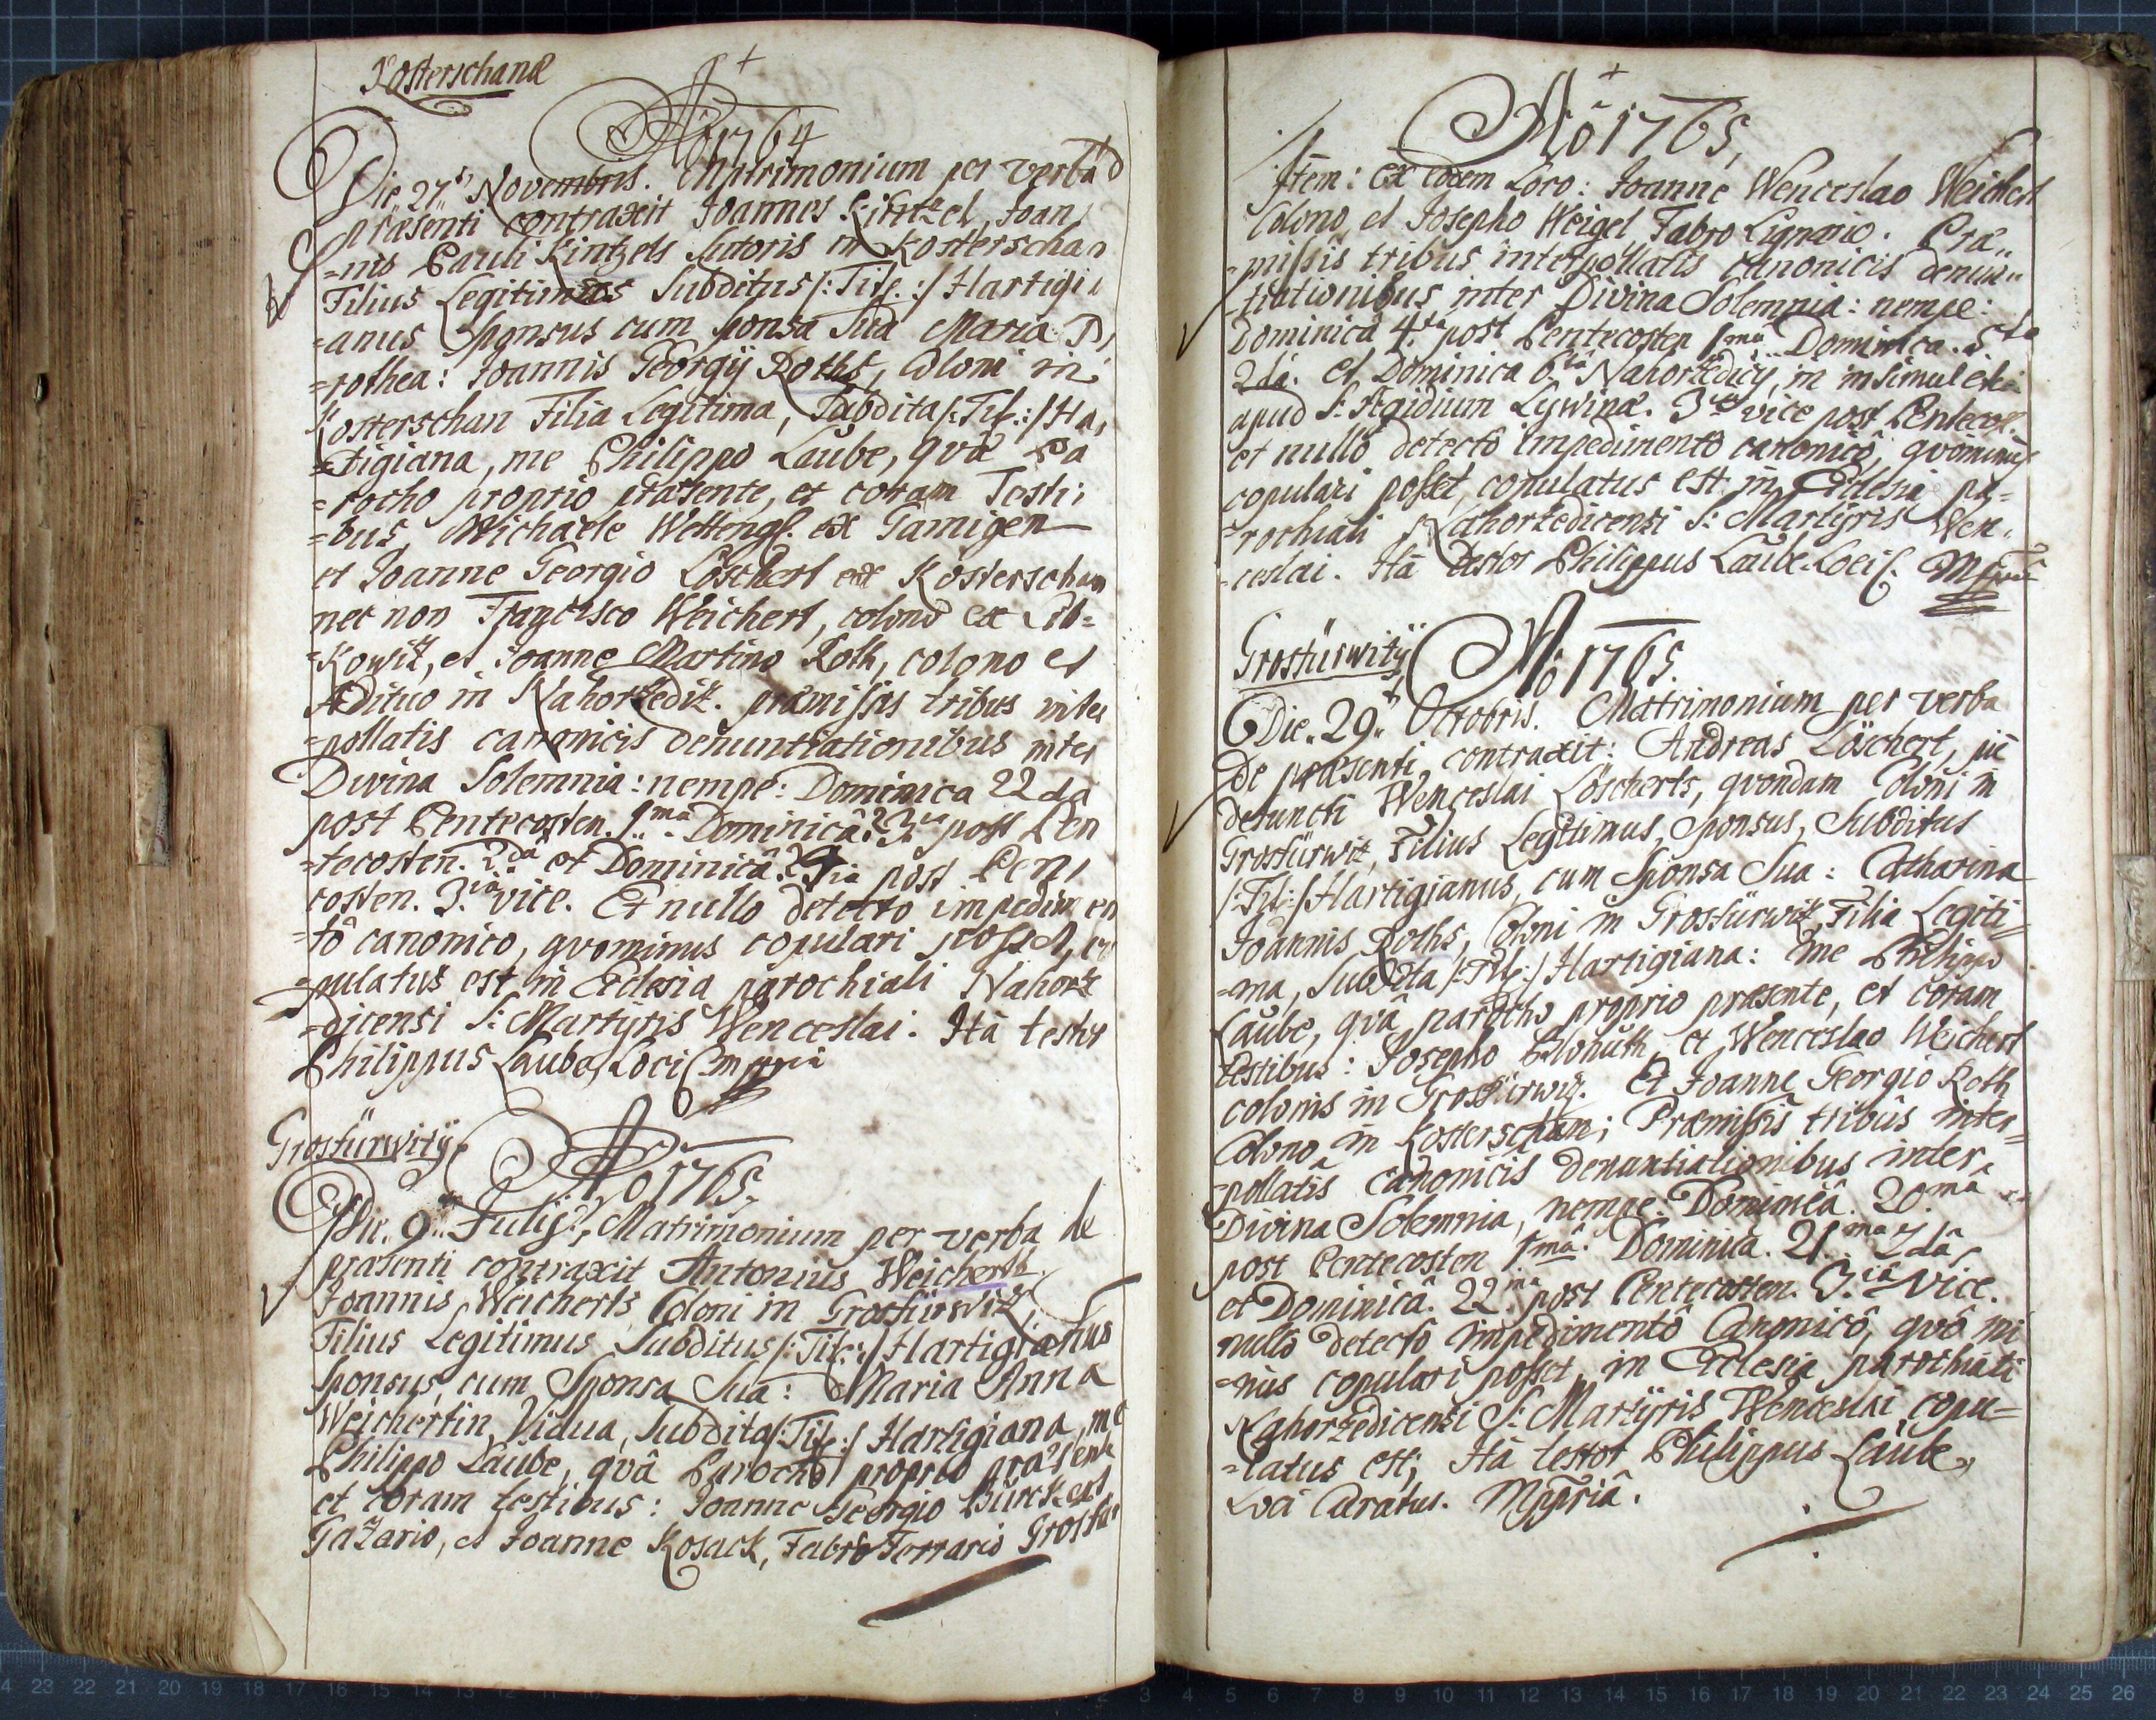 Kosterschanæ
Aô 1764
Die 27. Novembris. Matrimonium per verba d
præsenti contraxit Joannes Kintzel, Joan
=nis Pauli Kintzels Sutoris in Kosterschan
Filius Legitimus Subditus /: Titl. :/ Hartigi
=anus Sponsus cum sponsa Sua Maria D
=rothea: Joannis Georgij Roths, Coloni in
Kosterschan Filia Legitima, Subdita /: Titl. :/ Ha
=tigiana, me Philippo Laube, qvâ Pa
=rocho proprio præsente, et coram Testi
=bus, Michaele Wettengl. ex Gamigen
et Joanne Georgio Löschert ex Kosterschan
nec non Francisco Weichert, colono ex Lib=
=kowitz, et Joanne Martino Roth, colono et
Ædituo in Nahorzeditz. præmissis tribus inter
=pollatis canonicis denuntiationibus inter
Divina Solemnia: nempe: Dominica 22da
post Pentecosten. 1ma Dominicâ 23 post Pen
=tecosten. 2da et Dominicâ post Pent
costen. 3.iâ vice. Et nullo detecto impedimen
=tô canonico, qvominus copulari posset, co
=pulatus est in Ecclesia parochiali Nahorz
=dicensi S: Martÿris Wenceslai. Itâ testor
Philippus Laube, Loci C mppria
Grostürwitij
Aô 1765.
Die. 9. Julij, Matrimonium per verba de
præsenti contraxit Antonius Weichert
Joannis Weicherts Coloni in Grostürwitz
Filius Legitimus Subditus /: Titl: :/ Hartigianus
Sponsus, cum Sponsa Sua: Maria Anna
Weichertin, Vidua, Subdita /: Titl: :/ Hartigiana, me
Philippo Laube, qvâ Parocho proprio præsente
et coram testibus: Joanne Georgio Bürckert
Gazario, et Joanne Kosack, Fabro Ferrario Grostür
Aô 1765,
Item: ex eodem Loco: Joanne Wenceslao Weichert
Colono, et Josepho Weigel Fabro Lignario. Præ,,
=missis tribus interpollatis canonicis denun,,
=tiationibus inter Divina Solemnia: nempe:
Dominicâ 4ta post Pentecosten 1mâ Dominica. 5ta
2da. et Dominica 6tâ Nahorzedicij, in insimul etiã
apud S: Ægidium Lÿwinæ. 3tia vice post Pentecos.
et nullô detectô impedimentô canonicô, qvominus
copulari posset, copulatus est in Ecclesia pa=
=rochiali Nahorzedicensi S: Martÿris Wen,
=ceslai. Itâ testor Philippus Laube Loci C. Mppria
Grostürwitij
Aô 1765.
Die. 29. Octobris. Matrimonium per verba
De præsenti contraxit: Andreas Löschert, piè
defuncti Wenceslai Löscherts, qvondam Coloni in
Grostürwitz, Filius Legitimus, Sponsus, Subditus
/: Titl: :/ Hartigianus, cum Sponsa Sua: Catharina
Joannis Roths, Coloni in Grostürwitz Filia Legiti=
=ma, Subdita /: Titl: :/ Hartigiana: me Philippo
Laube, qvâ parocho proprio præsente, et coram
testibus: Josepho et Wenceslao Weichert
colonis in Grostürwitz. Et Joanne Georgio Roth
Colono in Kosterschan; Præmissis tribus inter=
=pollatis canonicis denuntiationibus inter
Divina Solemnia, nempe: Dominicâ. 20.mâ
post Pentecosten 1mâ. Dominica. 21.ma 2dâ
et Dominicâ. 22.mâ post Pentecosten. 3.iâ vice.
nullo detectô impedimentô Canonicô, qvô mi
=nus copulari posset, in Ecclesia parochiali
Nahorzedicensi S: Martÿris Wenceslai copu=
=latus est; Itâ testor Philippus Laube,
Loci Curatus. Mppriâ.